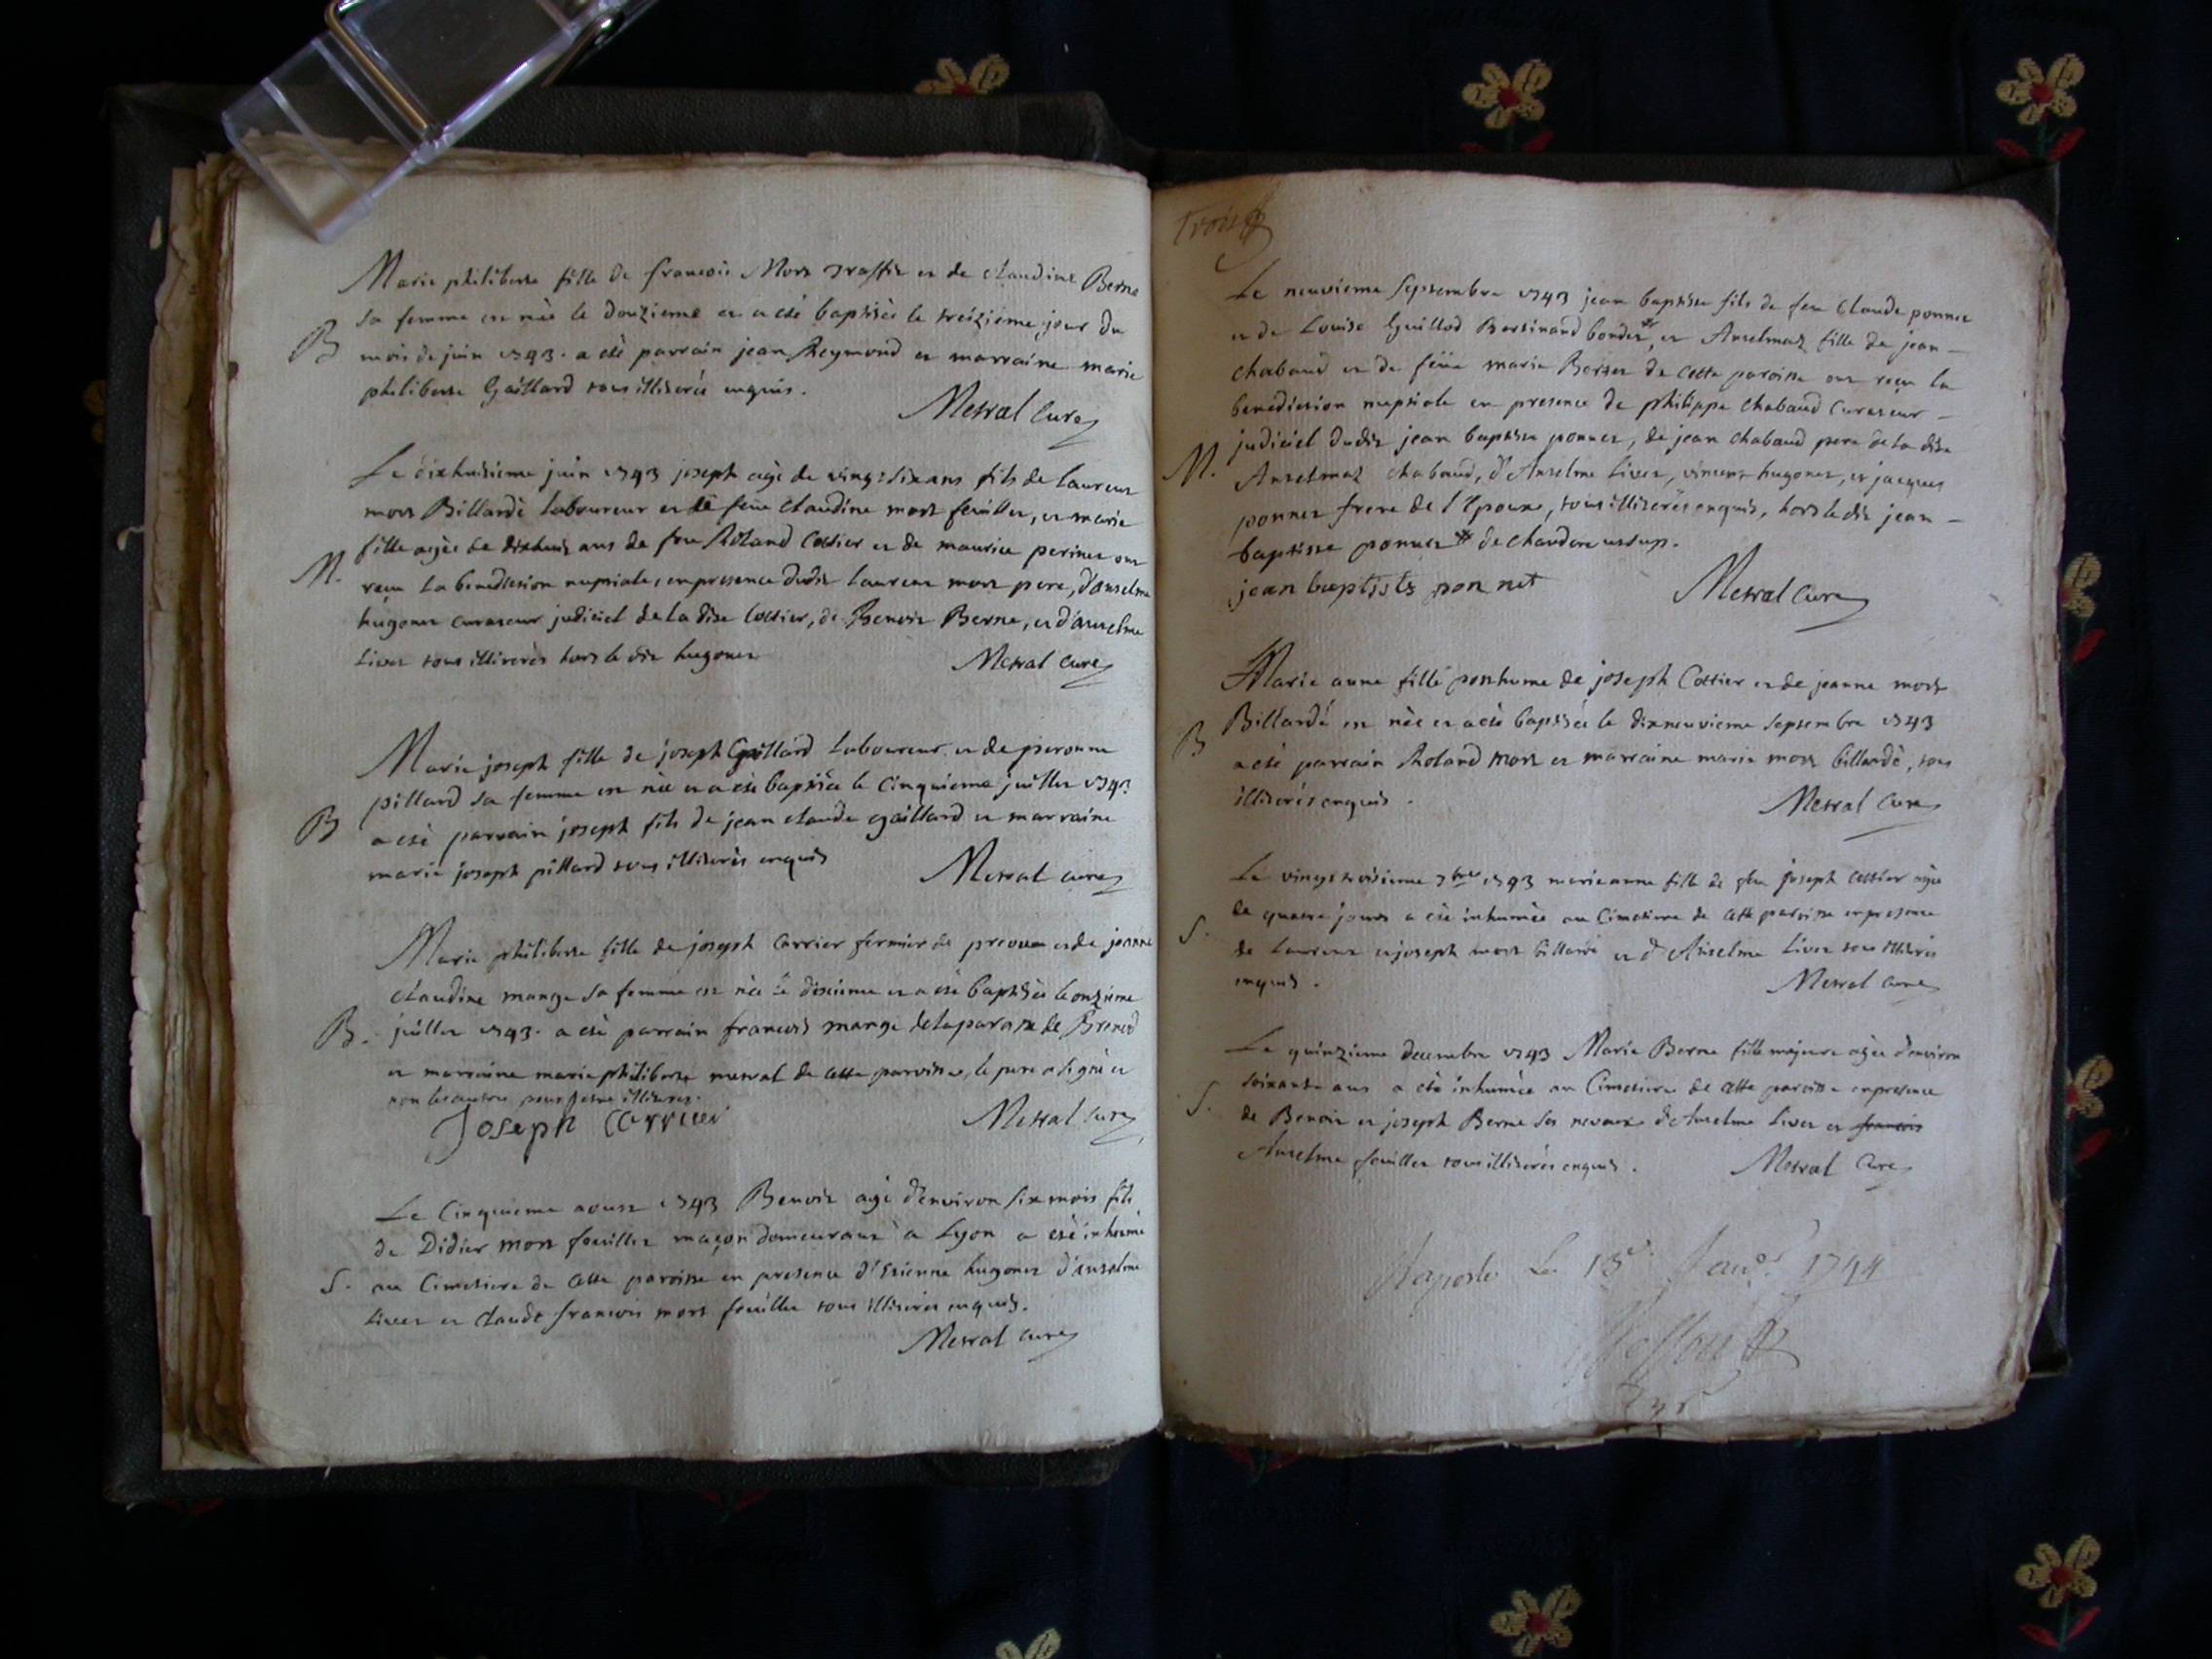 Marie philiberte fille de francois Mort et de claudine Berne
B sa femme est née le douzieme et a eté baptisée le treizieme jour du
mois de juin 1743. a eté parrain jean Reymond et marraine marie
philiberte Gaillard tous illiterés enquis.
Metral Curé
Le dixhuitieme juin 1743 joseph agé de vingt six ans fils de laurent
mort Billardé laboureur et de feüe claudine mort feuillet, et marie
fille agée de dixhuit ans de feu Roland Cottier et de maurice perinet ont
M. reçu la benediction nuptiale, en presence dudit laurent mort pere, d'anselme
hugonet curateur judiciel de la dite Cottier, de Benoit Berne, et d'anselme
Livet tous illiterés hors le dit hugonet
Metral curé
Marie joseph fille de joseph Gaillard laboureur et de peronne
pillard sa femme est née et a eté baptisée le cinquieme juillet 1743
B a eté parrain joseph fils de jean claude gaillard et marraine
marie joseph pillard tous illiterés enquis
Metral curé
Marie philiberte fille de joseph Carrier fermier de et de jeanne
claudine mange sa femme est née le dixieme et a eté baptisée le onzieme
B. juillet 1743. a eté parrain francois mange de la paroisse de Brenod
et marraine marie philiberte metral de cette paroisse, le pere a signé et
non les autres pour etre illiteres.
Joseph Carrier
Metral Curé
Le Cinquieme aoust 1743 Benoit agé d'environ six mois fils
de Didier mort feuillet maçon demeurant à Lyon a eté inhumé
S. au Cimetiere de cette paroisse en presence d'Etienne hugonet d'anselme
Livet et claude francois mort feuillet tous illiterés enquis.
Metral curé
Trois
Le neuvieme septembre 1743 jean baptiste fils de feu Claude ponnet
et de Louise Guillod Bertinand bondet*, et Anselmaz fille de jean -
chabaud et de feüe marie Bertet de cette paroisse ont reçu la
benediction nuptiale en presence de philippe chabaud Curateur -
judiciel dudit jean baptiste ponnet, de jean chabaud pere de la dite
M. Anselmaz chabaud, d'Anselme Livet, vincent hugonet, et jacques
ponnet frere de l'Epoux, tous illiterés enquis, hors le dit jean -
baptiste ponnet * de
jean baptiste ponnet
Metral Curé
Marie anne fille posthume de joseph Cottier et de jeanne mort
Billardé est née et a eté baptisée le dixneuvieme septembre 1743
B a eté parrain Roland mort et marraine marie mort billardé, tous
illiterés enquis.
Metral Curé
Le vingt troisieme 7bre 1743 marie anne fille de feu joseph cottier agée
de quatre jours a eté inhumée au Cimetiere de cette paroisse en presence
S. de Laurent et joseph mort billardé et d'Anselme Livet tous illiterés
enquis.
Metral curé
Le quinzieme decembre 1743 Marie Berne fille majeure agée d'environ
soixante ans a eté inhumée au Cimetiere de cette paroisse en presence
S. de Benoit et joseph Berne ses neveux d'Anselme Livet et francois
Anselme feuillet tous illiterés enquis.
Metral Curé
Raporté Le 13e Janv. 1744